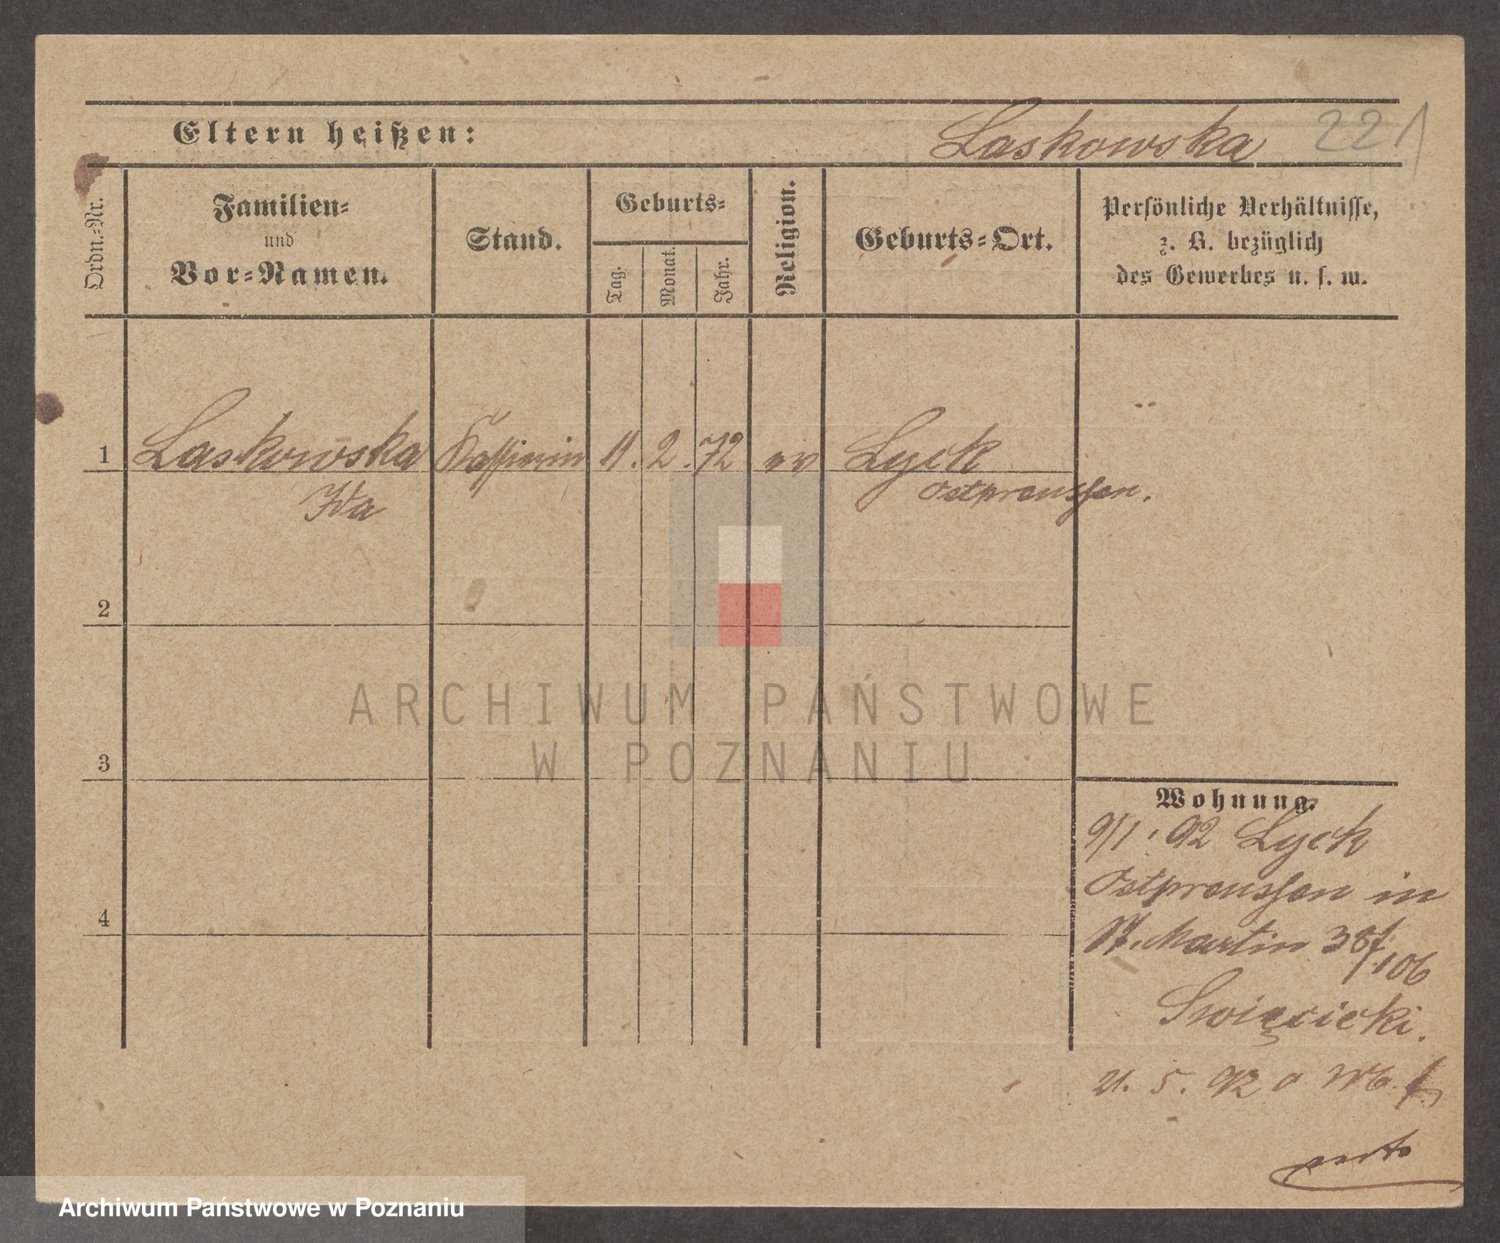 Eltern heißen:
Laskowska 221
Ordn.-Nr.
Familien-
und
Vor-Namen.
Stand.
Geburts-
Tag.
Monat.
Jahr.
Religion.
Geburts-Ort.
Persönliche Verhältnisse,
z. B. bezüglich
des Gewerbes u. s. w.
1 Laskowska Kassirerin 11. 2. 72 ev Lyck
Ida Ostpreussen.
2
3
4
Wohnung.
9/1. 92 Lyck
Ostpreussen in
Martin 38
106
Święcicki.
21. 5. 92
ARCHIWUM PAŃSTWOWE
W POZNANIU
Archiwum Państwowe w Poznaniu